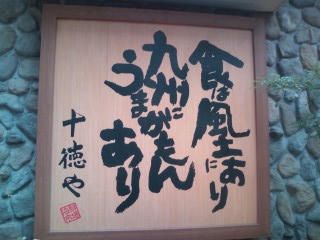 食は風土にあり
九州に
うまかもん
あり
十徳や